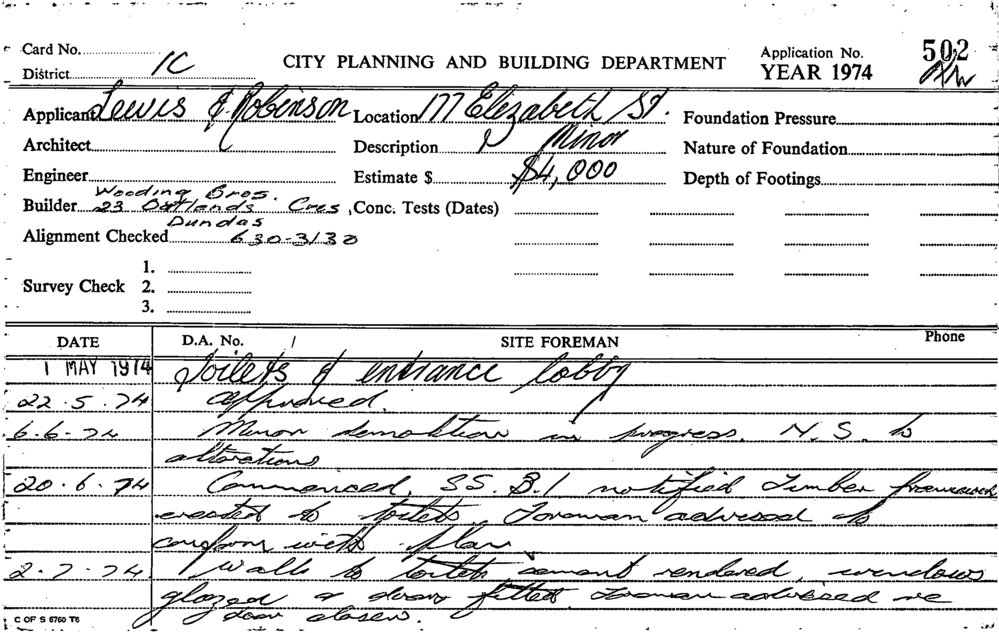 Card No.
District 1C
CITY PLANNING AND BUILDING DEPARTMENT
Application No. 502
YEAR 1974
Applicant Lewis & Robinson Location 177 Elizabeth St. Foundation Pressure
Architect Description Minor Nature of Foundation
Engineer Estimate $ $4,000 Depth of Footings
Wooding Bros.
Builder 23 Oatlands Cres, Conc. Tests (Dates)
Dundas
Alignment Checked 630-3130
1.
Survey Check 2.
3.
DATE D.A. No. / SITE FOREMAN Phone
1 MAY 1974 Toilets & entrance lobby
22.5.74 approved.
6.6.74 Minor demolition in progress. N.S. to
alterations
20.6.74 Commenced, S.S.B.1 notified Timber framework
erected to toilets. Foreman advised to
conform with plan
2.7.74 Walls to toilets cement rendered, windows
glazed & doors fitted. Foreman advised re
door closer.
C OF S 6760 T6